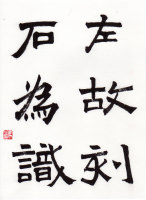 左故刻
石為識